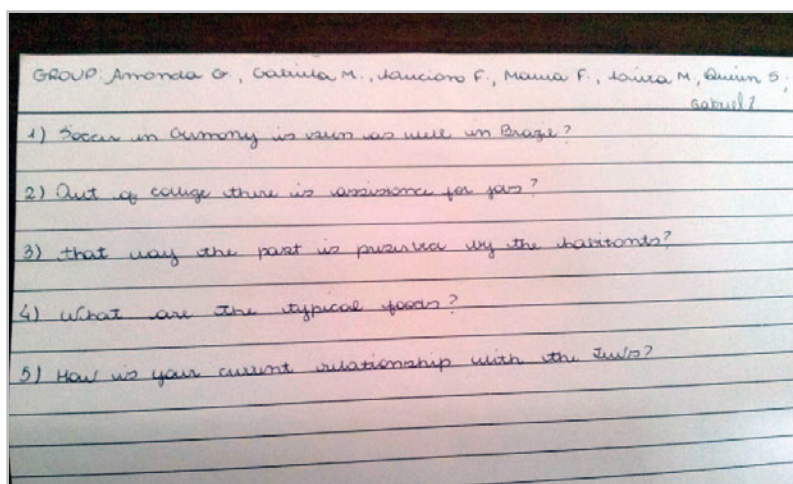 GROUP: Amanda G., Gabriela M., Luciano F., Maria F., Laura M., S.,
Gabriel
1) Soccer in Germany is seen as well in Brazil?
2) Out of college there is assistance for jobs?
3) that way the past is presented by the habitants?
4) What are the typical foods?
5) How is your current relationship with the Jews?